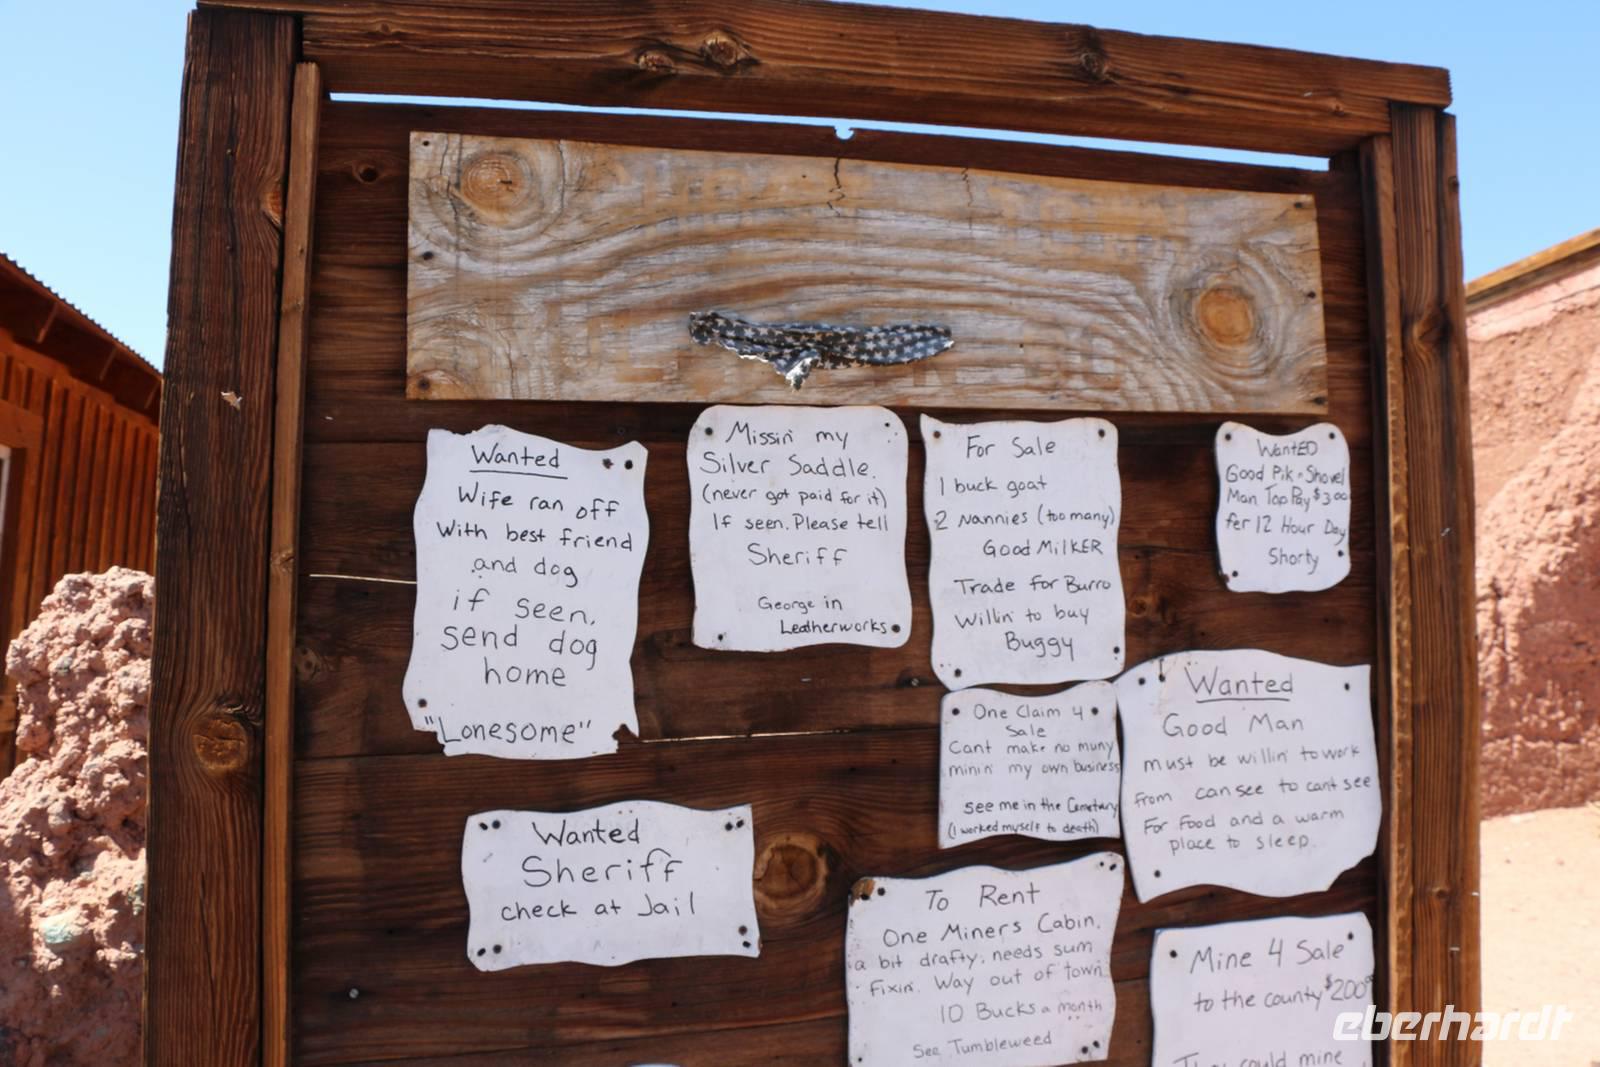 Wanted
Wife ran off
With best friend
and dog
if seen,
send dog
home
"Lonesome"
Missin' my
Silver Saddle.
(never got paid for it)
If seen. Please tell
Sheriff
George in
Leatherworks
For Sale
1 buck goat
2 Nannies (too many)
Good MilKER
Trade for Burro
Willin' to buy
Buggy
WantED
Good Pik + Shovel
Man Top Pay $3.00
fer 12 Hour Day
Shorty
One Claim 4
Sale
Cant make no muny
minin' my own business
see me in the Cemetary
(I worked myself to death)
Wanted
Good Man
must be willin' to work
from can see to cant see
For Food and a warm
place to sleep.
Wanted
Sheriff
check at Jail
To Rent
One Miners Cabin.
a bit drafty, needs sum
fixin'. Way out of town.
10 Bucks a month
See Tumbleweed
Mine 4 Sale
to the county $200.00
They could mine
eberhardt